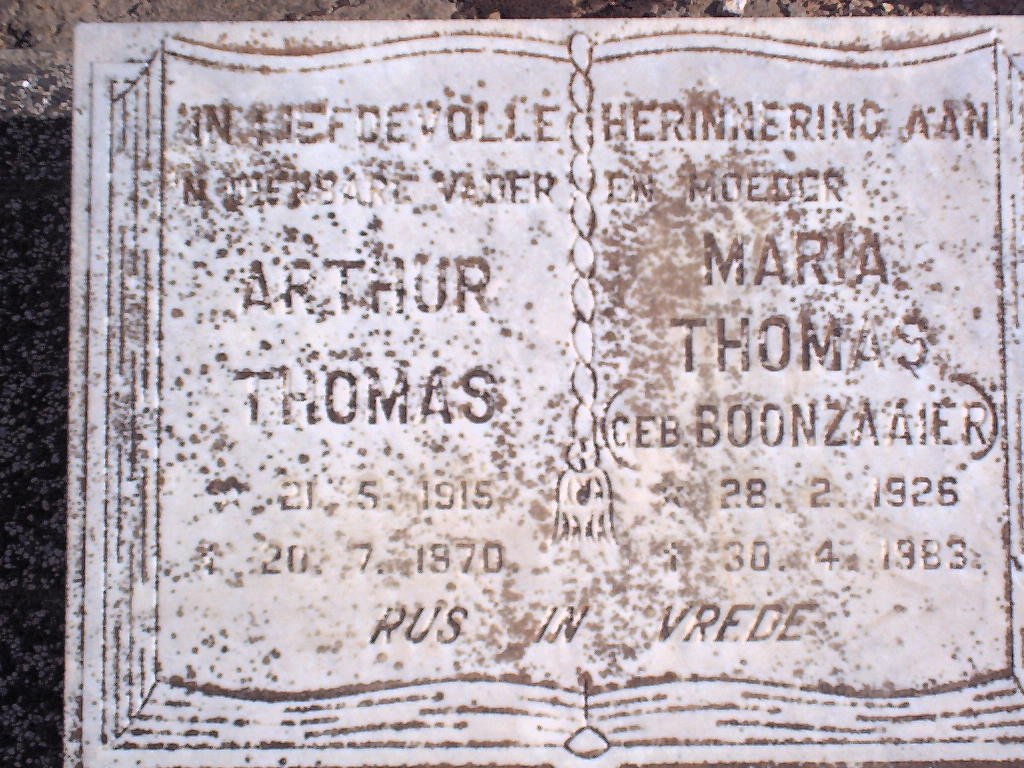 IN LIEFDEVOLLE HERINNERING AAN
'N DIERBARE VADER EN MOEDER
ARTHUR
THOMAS
* 21. 5. 1915
† 20. 7. 1970
MARIA
THOMAS
(GEB BOONZAAIER)
* 28. 2. 1926
† 30. 4. 1983.
RUS IN VREDE